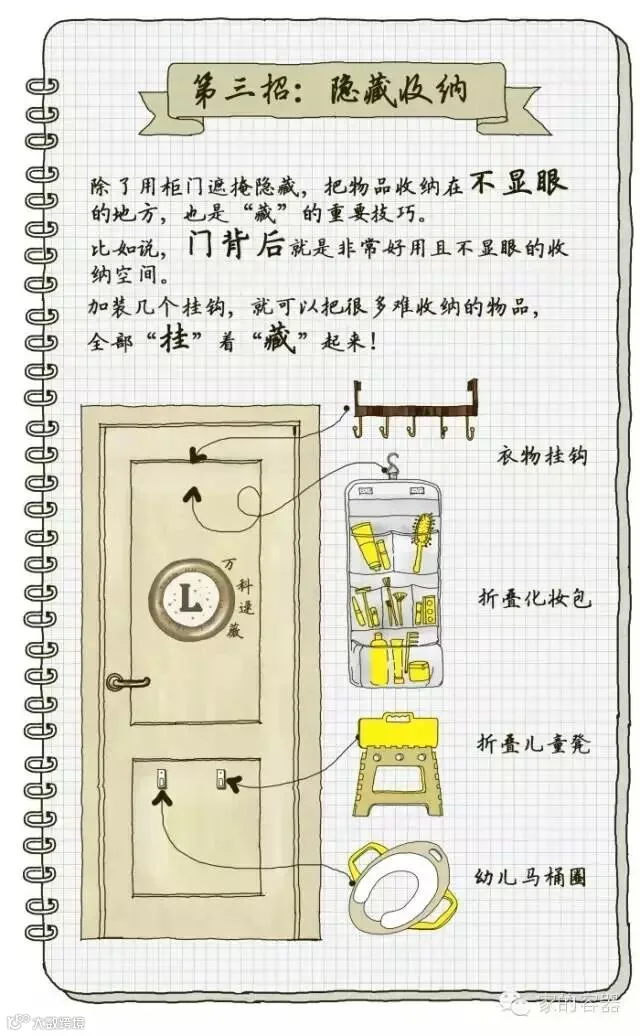 第三招：隐藏收纳
除了用柜门遮掩隐藏，把物品收纳在不显眼
的地方，也是“藏”的重要技巧。
比如说，门背后就是非常好用且不显眼的收
纳空间。
加装几个挂钩，就可以把很多难收纳的物品，
全部“挂”着“藏”起来！
衣物挂钩
L
万科遥薇
折叠化妆包
折叠儿童凳
幼儿马桶圈
家的容器
大数跨境